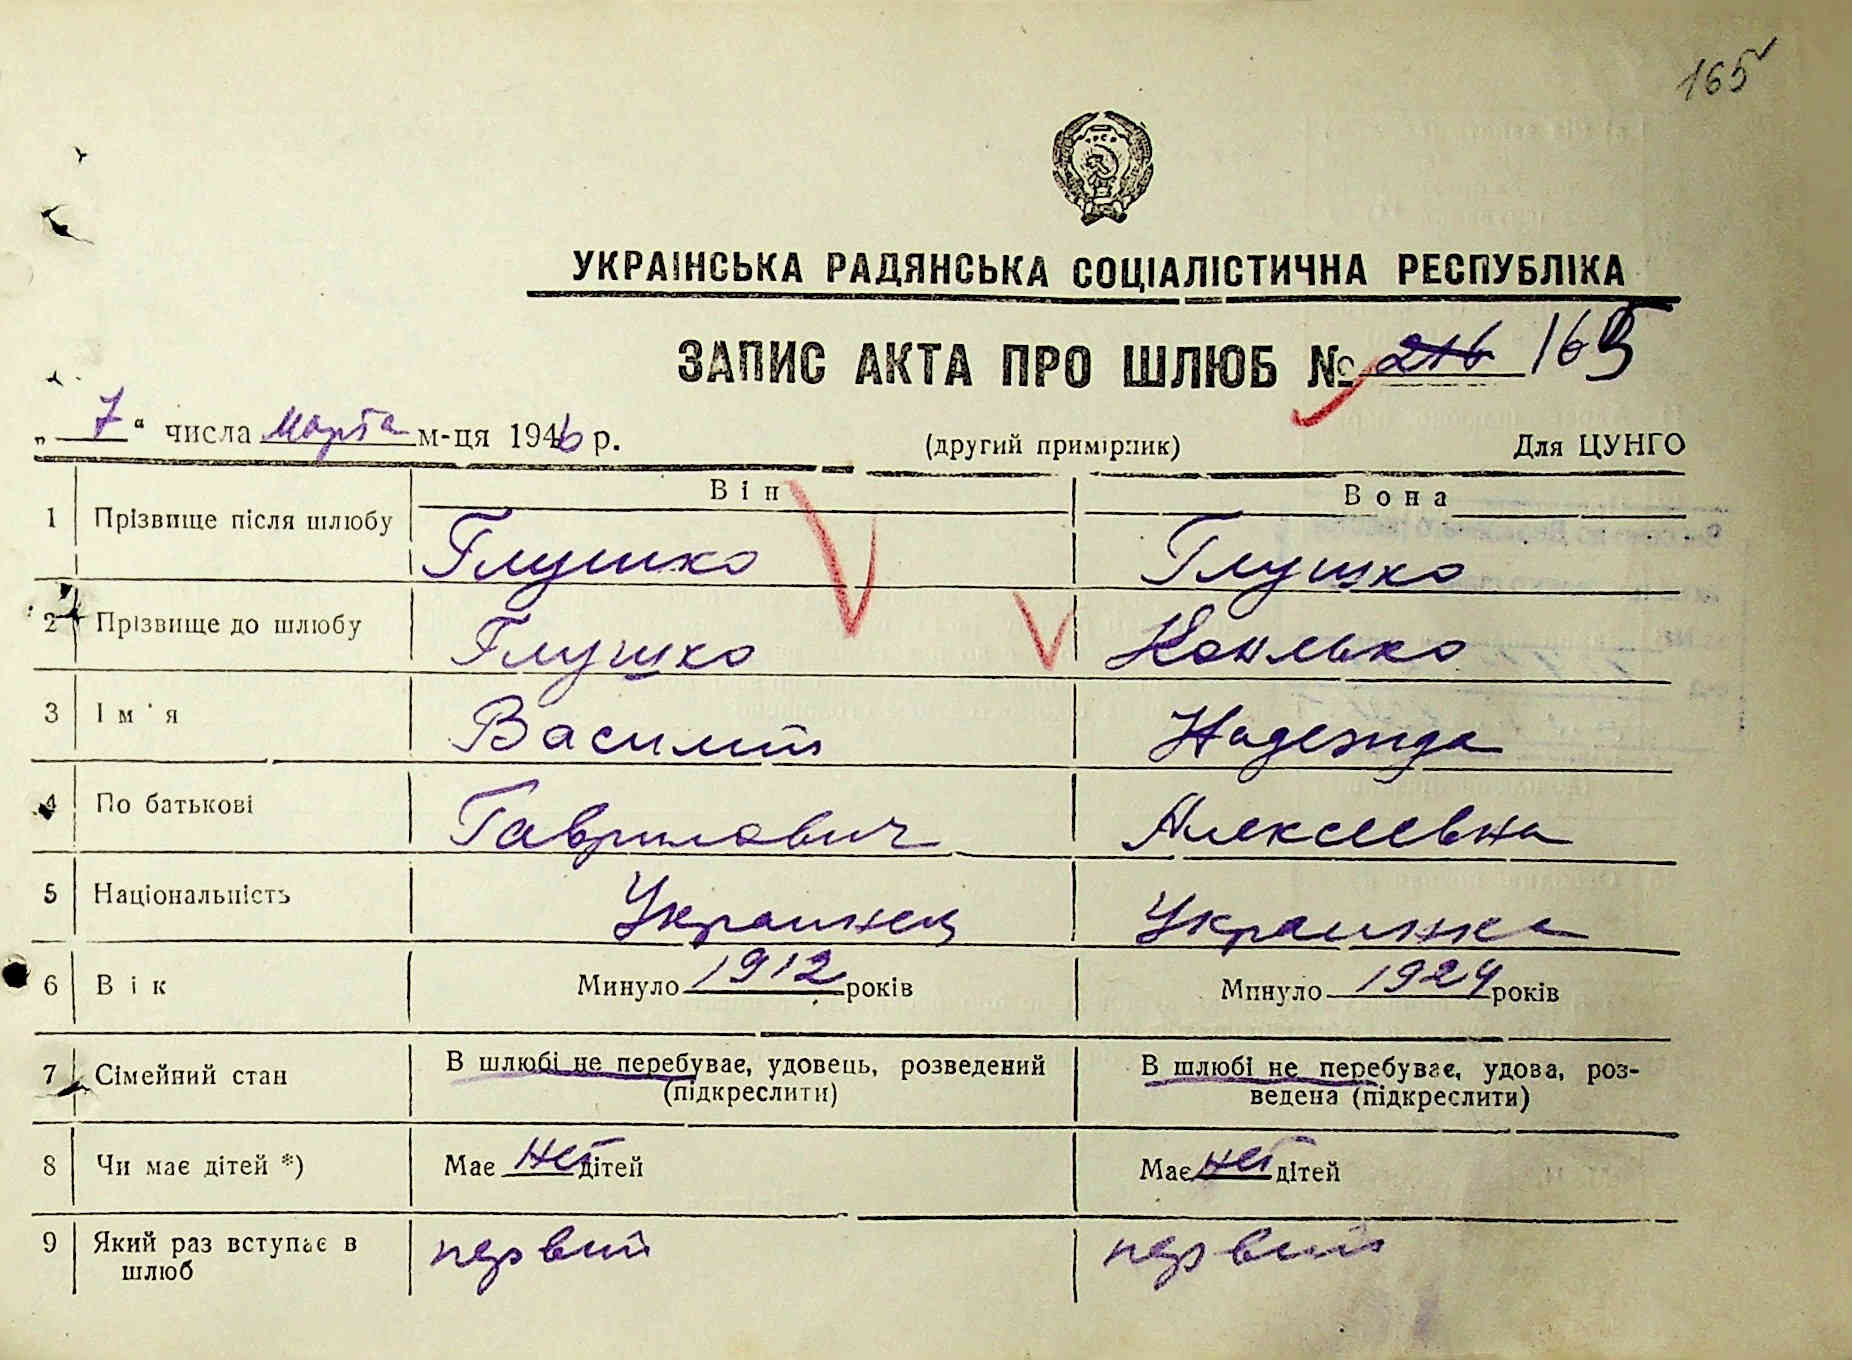 165
УКРАЇНСЬКА РАДЯНСЬКА СОЦІАЛІСТИЧНА РЕСПУБЛІКА
ЗАПИС АКТА ПРО ШЛЮБ № 216 165
„ 7 “ числа марта м-ця 1946 р. (другий примірник) Для ЦУНГО
Він Вона
1 Прізвище після шлюбу Глушко Глушко
2 Прізвище до шлюбу Глушко
3 Ім'я Василий Надежда
4 По батькові Гаврилович Алексеевна
5 Національність Украинец Украинка
6 Вік Минуло 1912 років Минуло 1924 років
7 Сімейний стан В шлюбі не перебуває, удовець, розведений (підкреслити) В шлюбі не перебуває, удова, роз-
ведена (підкреслити)
8 Чи має дітей *) Має нет дітей Має нет дітей
9 Який раз вступає в шлюб первий первий